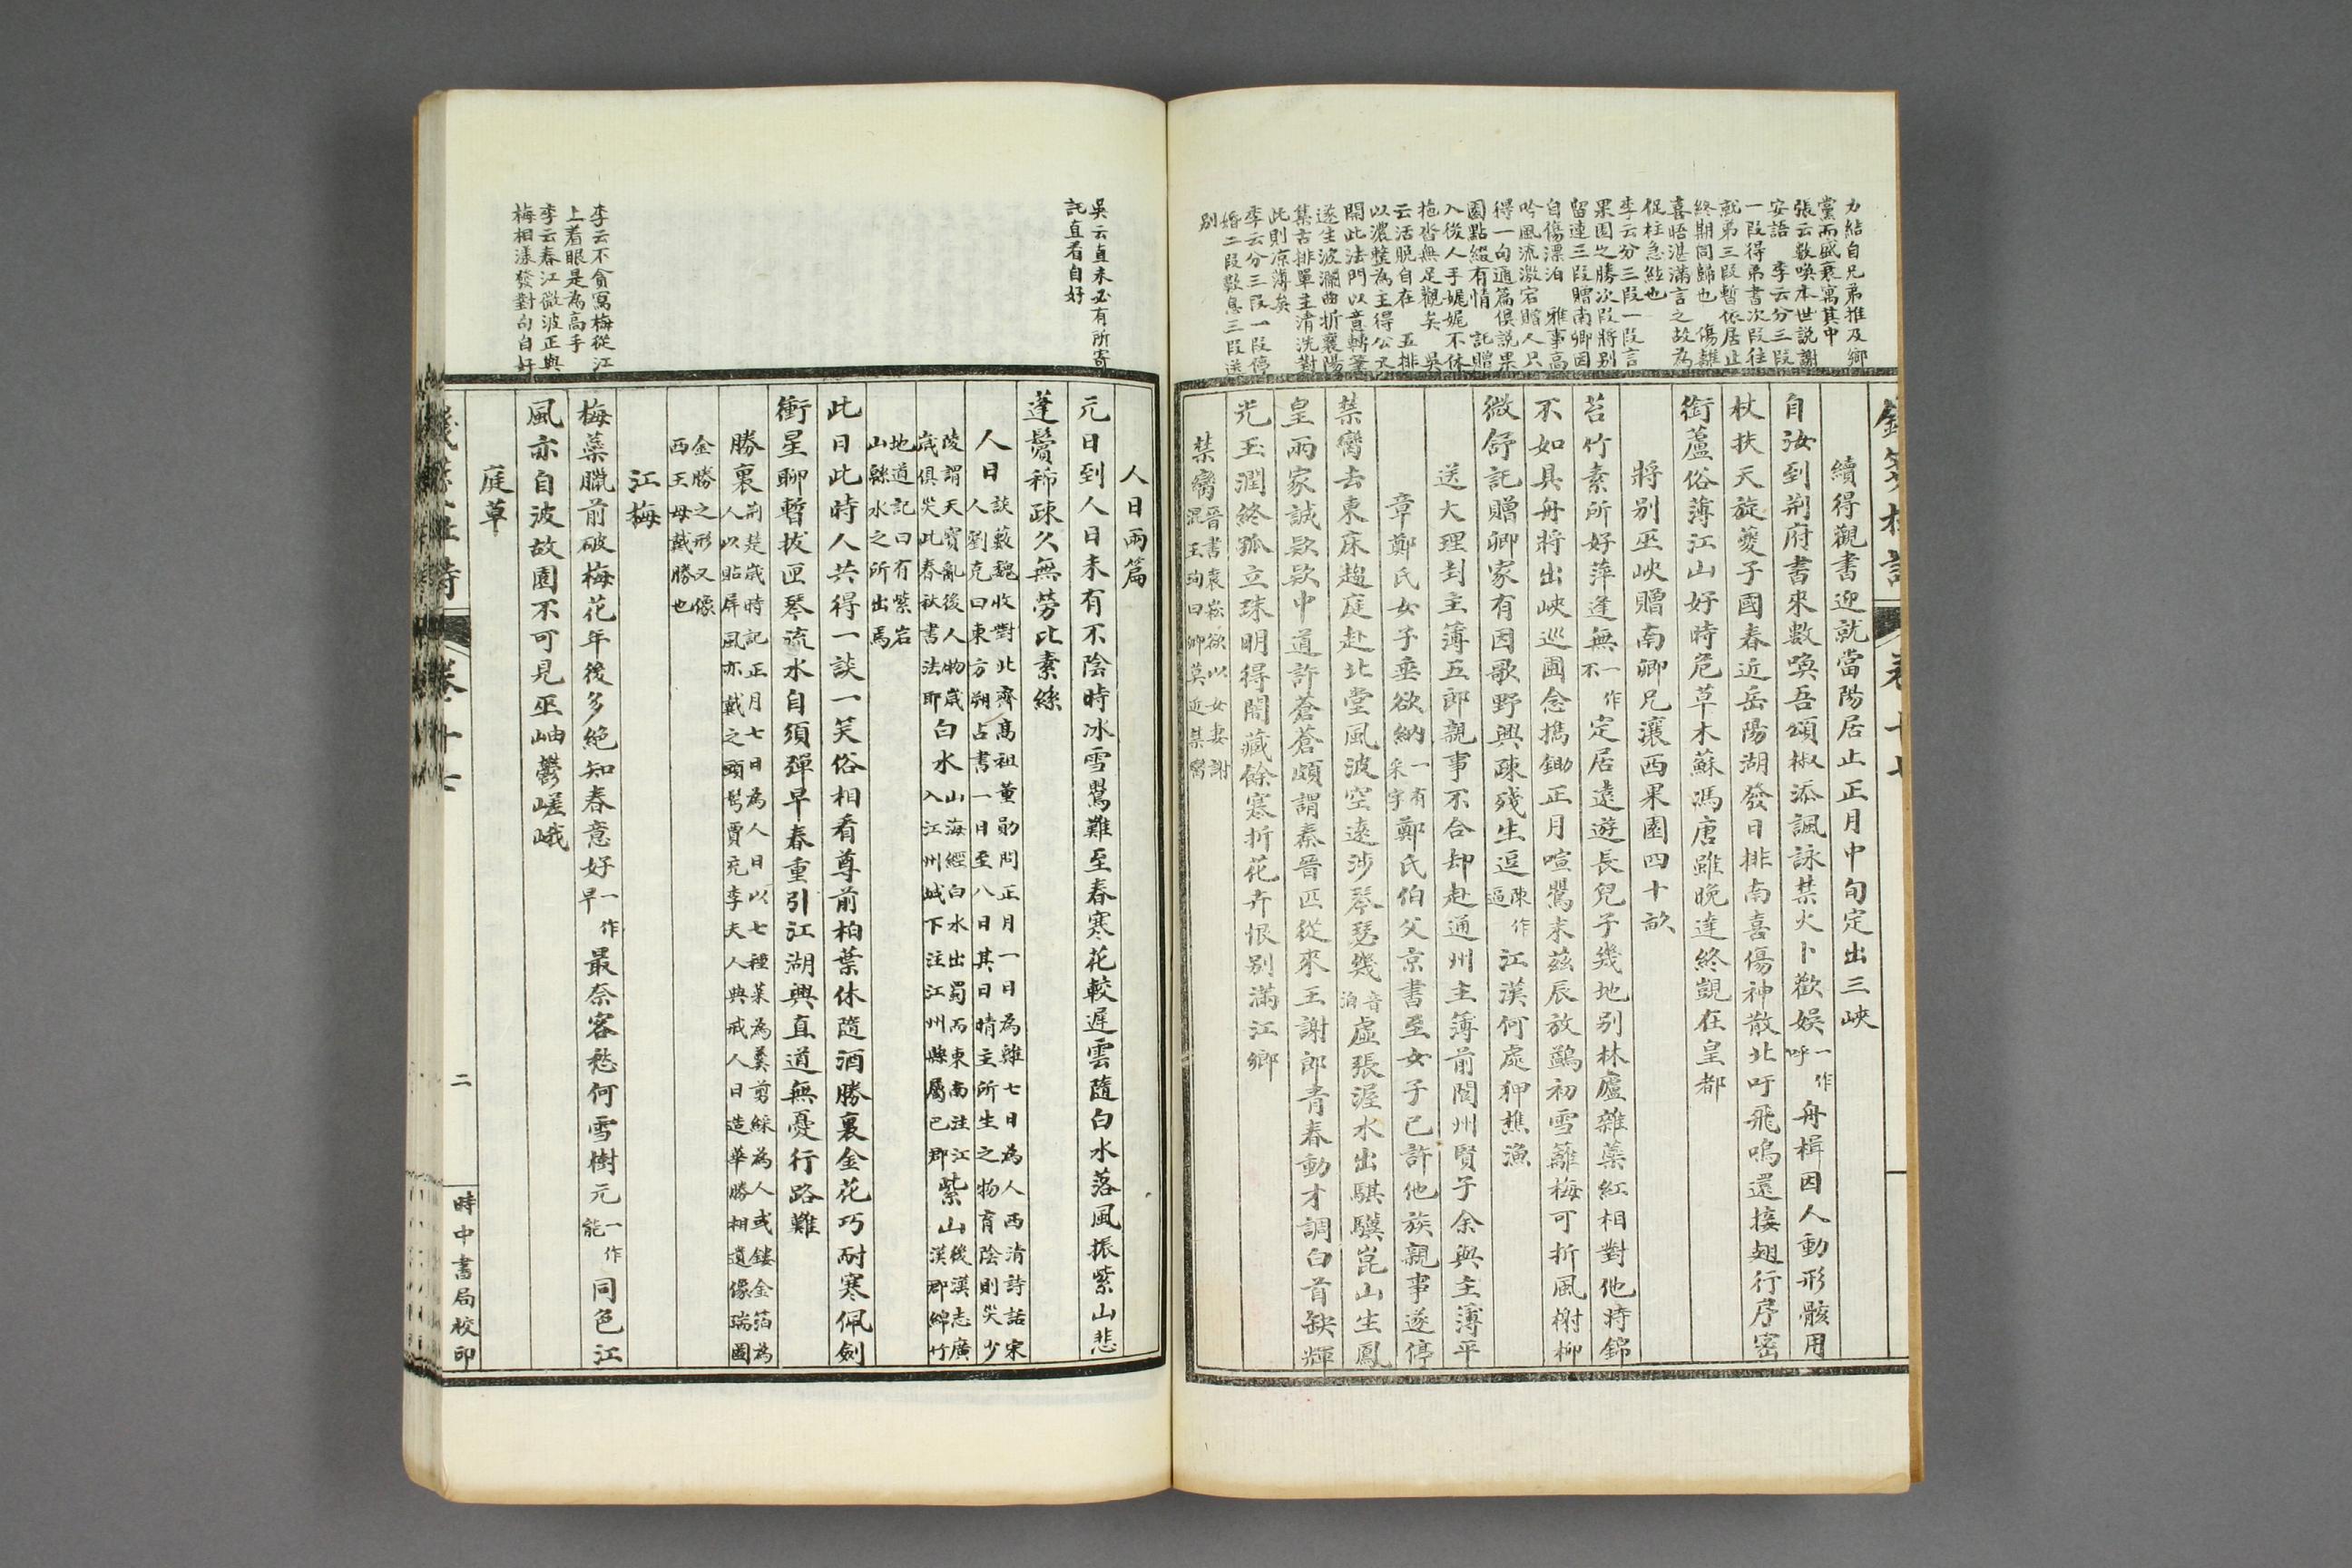 力結自兄弟推及鄉
黨而盛衰寓其中
張云數喚本世説謝
安語　李云分三段
一段得弟書次段往
就弟三段暫依居止
終期同歸也　傷離
喜晤湛滿言之故為
促柱急絃也
李云分三段一段言
果園之勝次段將别
留連三段贈南卿因
自傷漂泊　雅事高
吟風流激宕贈人只
得一句通篇俱説果
園點綴有情　託贈
入後人手娓娓不休
拖沓無足觀矣　吳
云活脫自在　五排
以濃整為主得公又
開此法門以音轉筆
遂生波瀾曲折襄陽
集古排單主清洗對
此則凉薄矣
李云分三段一段停
婚二段歎息三段送
别
續得觀書迎就當陽居止正月中旬定出三峽
自汝到荆府書來數喚吾頌椒添諷詠禁火卜歡娱一作呼舟楫因人動形骸用
杖扶天旋夔子國春近岳陽湖發日排南喜傷神散北吁飛鳴還接翅行序密
銜蘆俗薄江山好時危草木蘇馮唐雖晚達終覬在皇都
將别巫峽贈南卿兄瀼西果園四十畝
苔竹素所好萍逢無一作不定居遠遊長兒子幾地别林廬雜蘂紅相對他時錦
不如具舟將出峽巡圃念擕鋤正月喧鶯末茲辰放鷁初雪籬梅可折風榭柳
微舒託贈卿家有因歌野興疎殘生逗陳作逼江漢何處狎樵漁
送大理封主簿五郎親事不合却赴通州主簿前閬州賢子余與主簿平
章鄭氏女子垂欲納一有采字鄭氏伯父京書至女子已許他族親事遂停
禁臠去東床趨庭赴北堂風波空遠涉琴瑟幾音泊虛張渥水出騏驥崑山生鳳
皇兩家誠欵欵中道許蒼蒼頗謂秦晉匹從來王謝郎青春動才調白首缺輝
光玉潤終孤立珠明得闇藏餘寒折花卉恨别滿江鄉
禁臠晉書袁崧欲以女妻謝
混王珣曰卿莫近禁臠
吳云直未必有所寄
託直看自好
李云不貪寫梅從江
上着眼是為高手
李云春江微波正與
梅相漾發對句自好
人日兩篇
元日到人日未有不陰時冰雪鶯難至春寒花較遲雲隨白水落風振紫山悲
蓬鬢稀疎久無勞比素絲
人日談藪魏收對北齊高祖董勛問正月一日為雞七日為人西清詩話宋
人劉克曰東方朔占書一日至八日其日晴主所生之物育陰則災少
陵謂天寶亂後人物歲
歲俱災此春秋書法耶白水山海經白水出蜀而東南注江
入江州城下注江州縣屬巴郡紫山後漢志廣
漢郡綿竹
地道記曰有紫岩
山緜水之所出焉
此日此時人共得一談一笑俗相看尊前柏葉休隨酒勝裏金花巧耐寒佩劍
衝星聊暫拔匣琴流水自須彈早春重引江湖興直道無憂行路難
勝裏荆楚歲時記正月七日為人日以七種菜為羹剪綵為人或鏤金箔為
人以貼屏風亦戴之頭鬂賈充李夫人典戒人日造華勝相遺像瑞圖
金勝之形又像
西王母戴勝也
江梅
梅蘂臘前破梅花年後多絶知春意好一作早最奈客愁何雪樹元一作能同色江
風亦自波故園不可見巫岫鬱嵯峨
庭草
卷十七
二
時中書局校印